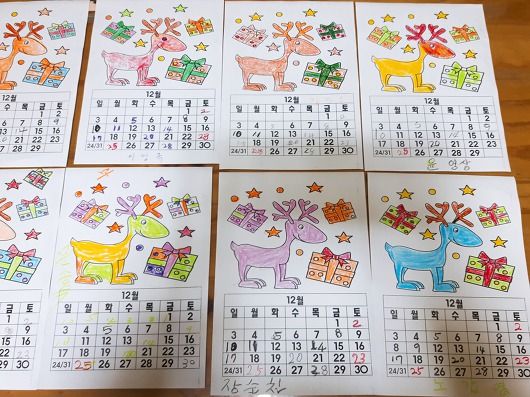 12월
수 목 금 토
15 16
22 23
27 28 29 30
12월
일 월 화 수 목 금 토
1 2
3 4 5 6 7 8 9
10 11 12 13 14 15 16
17 18 19 20 21 22 23
24/31 25 26 27 28 29 30
12월
일 월 화 수 목 금 토
1
3 4 5 6 7 8
10 11 12 13 14 15 16
17 18 19 20 21 22 23
24/31 25 26 27 28 29 30
12월
일 월 화 수 목 금 토
1
3 4 5 6 7 8 9
10 11 12 13 14 15 16
17 18 19 20 21 22 23
24/31 25 26 27 28 29
윤 영상
금 토
1
9
15 16
22 23
29 30
12월
일 월 화 수 목 금 토
1
3 4 5 6 7 8 9
10 11 12 13 14 15 16
17 18 19 21 22 23
24/31 25 26 27 28 29 30
12월
일 월 화 수 목 금 토
1 2
3 4 5 6 7 8 9
10 11 12 13 14 15 16
17 18 19 20 21 22 23
24/31 25 26 27 28 29 30
장순찬
12월
일 월 화 수 목 금 토
1 2
3 4 5 6 7 8 9
10 11 12 13 14 15 16
17 18 19 20 21 22 23
24/31 25 26 27 28 29 30